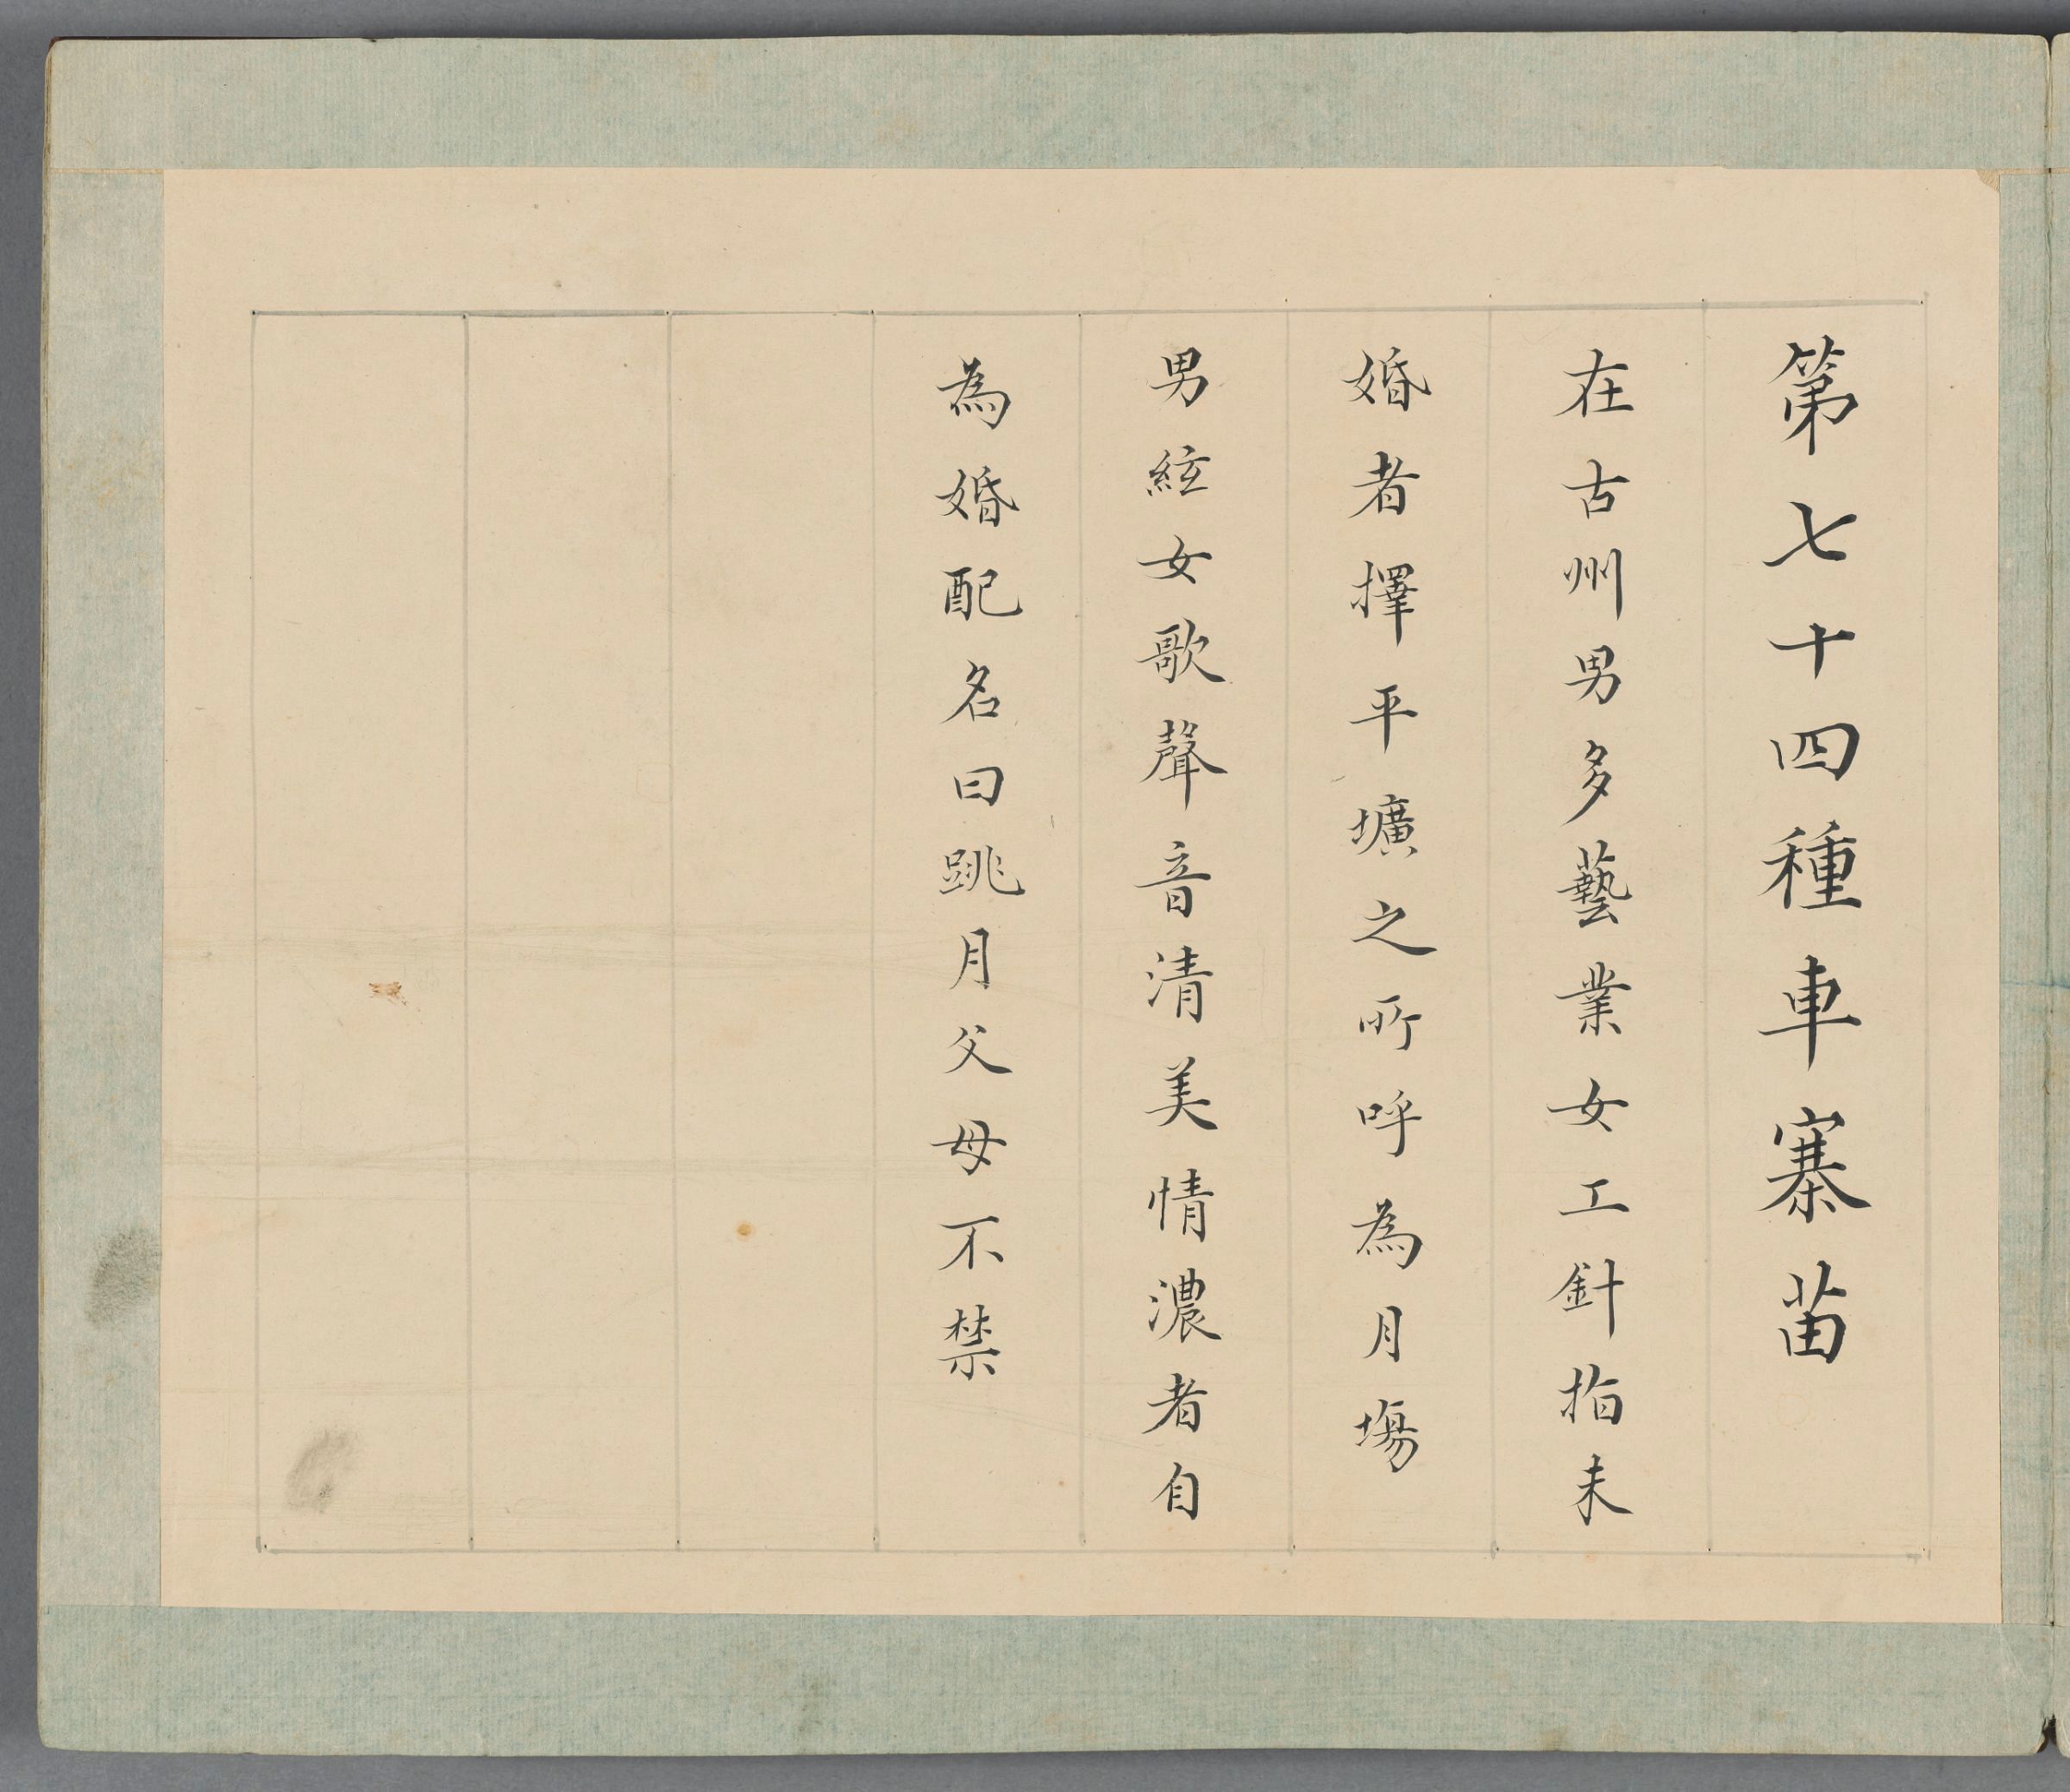 第七十四種車寨苗
在古州男多藝業女工針指未
婚者擇平壙之所呼為月塲
男絃女歌聲音清美情濃者自
為婚配名曰跳月父母不禁